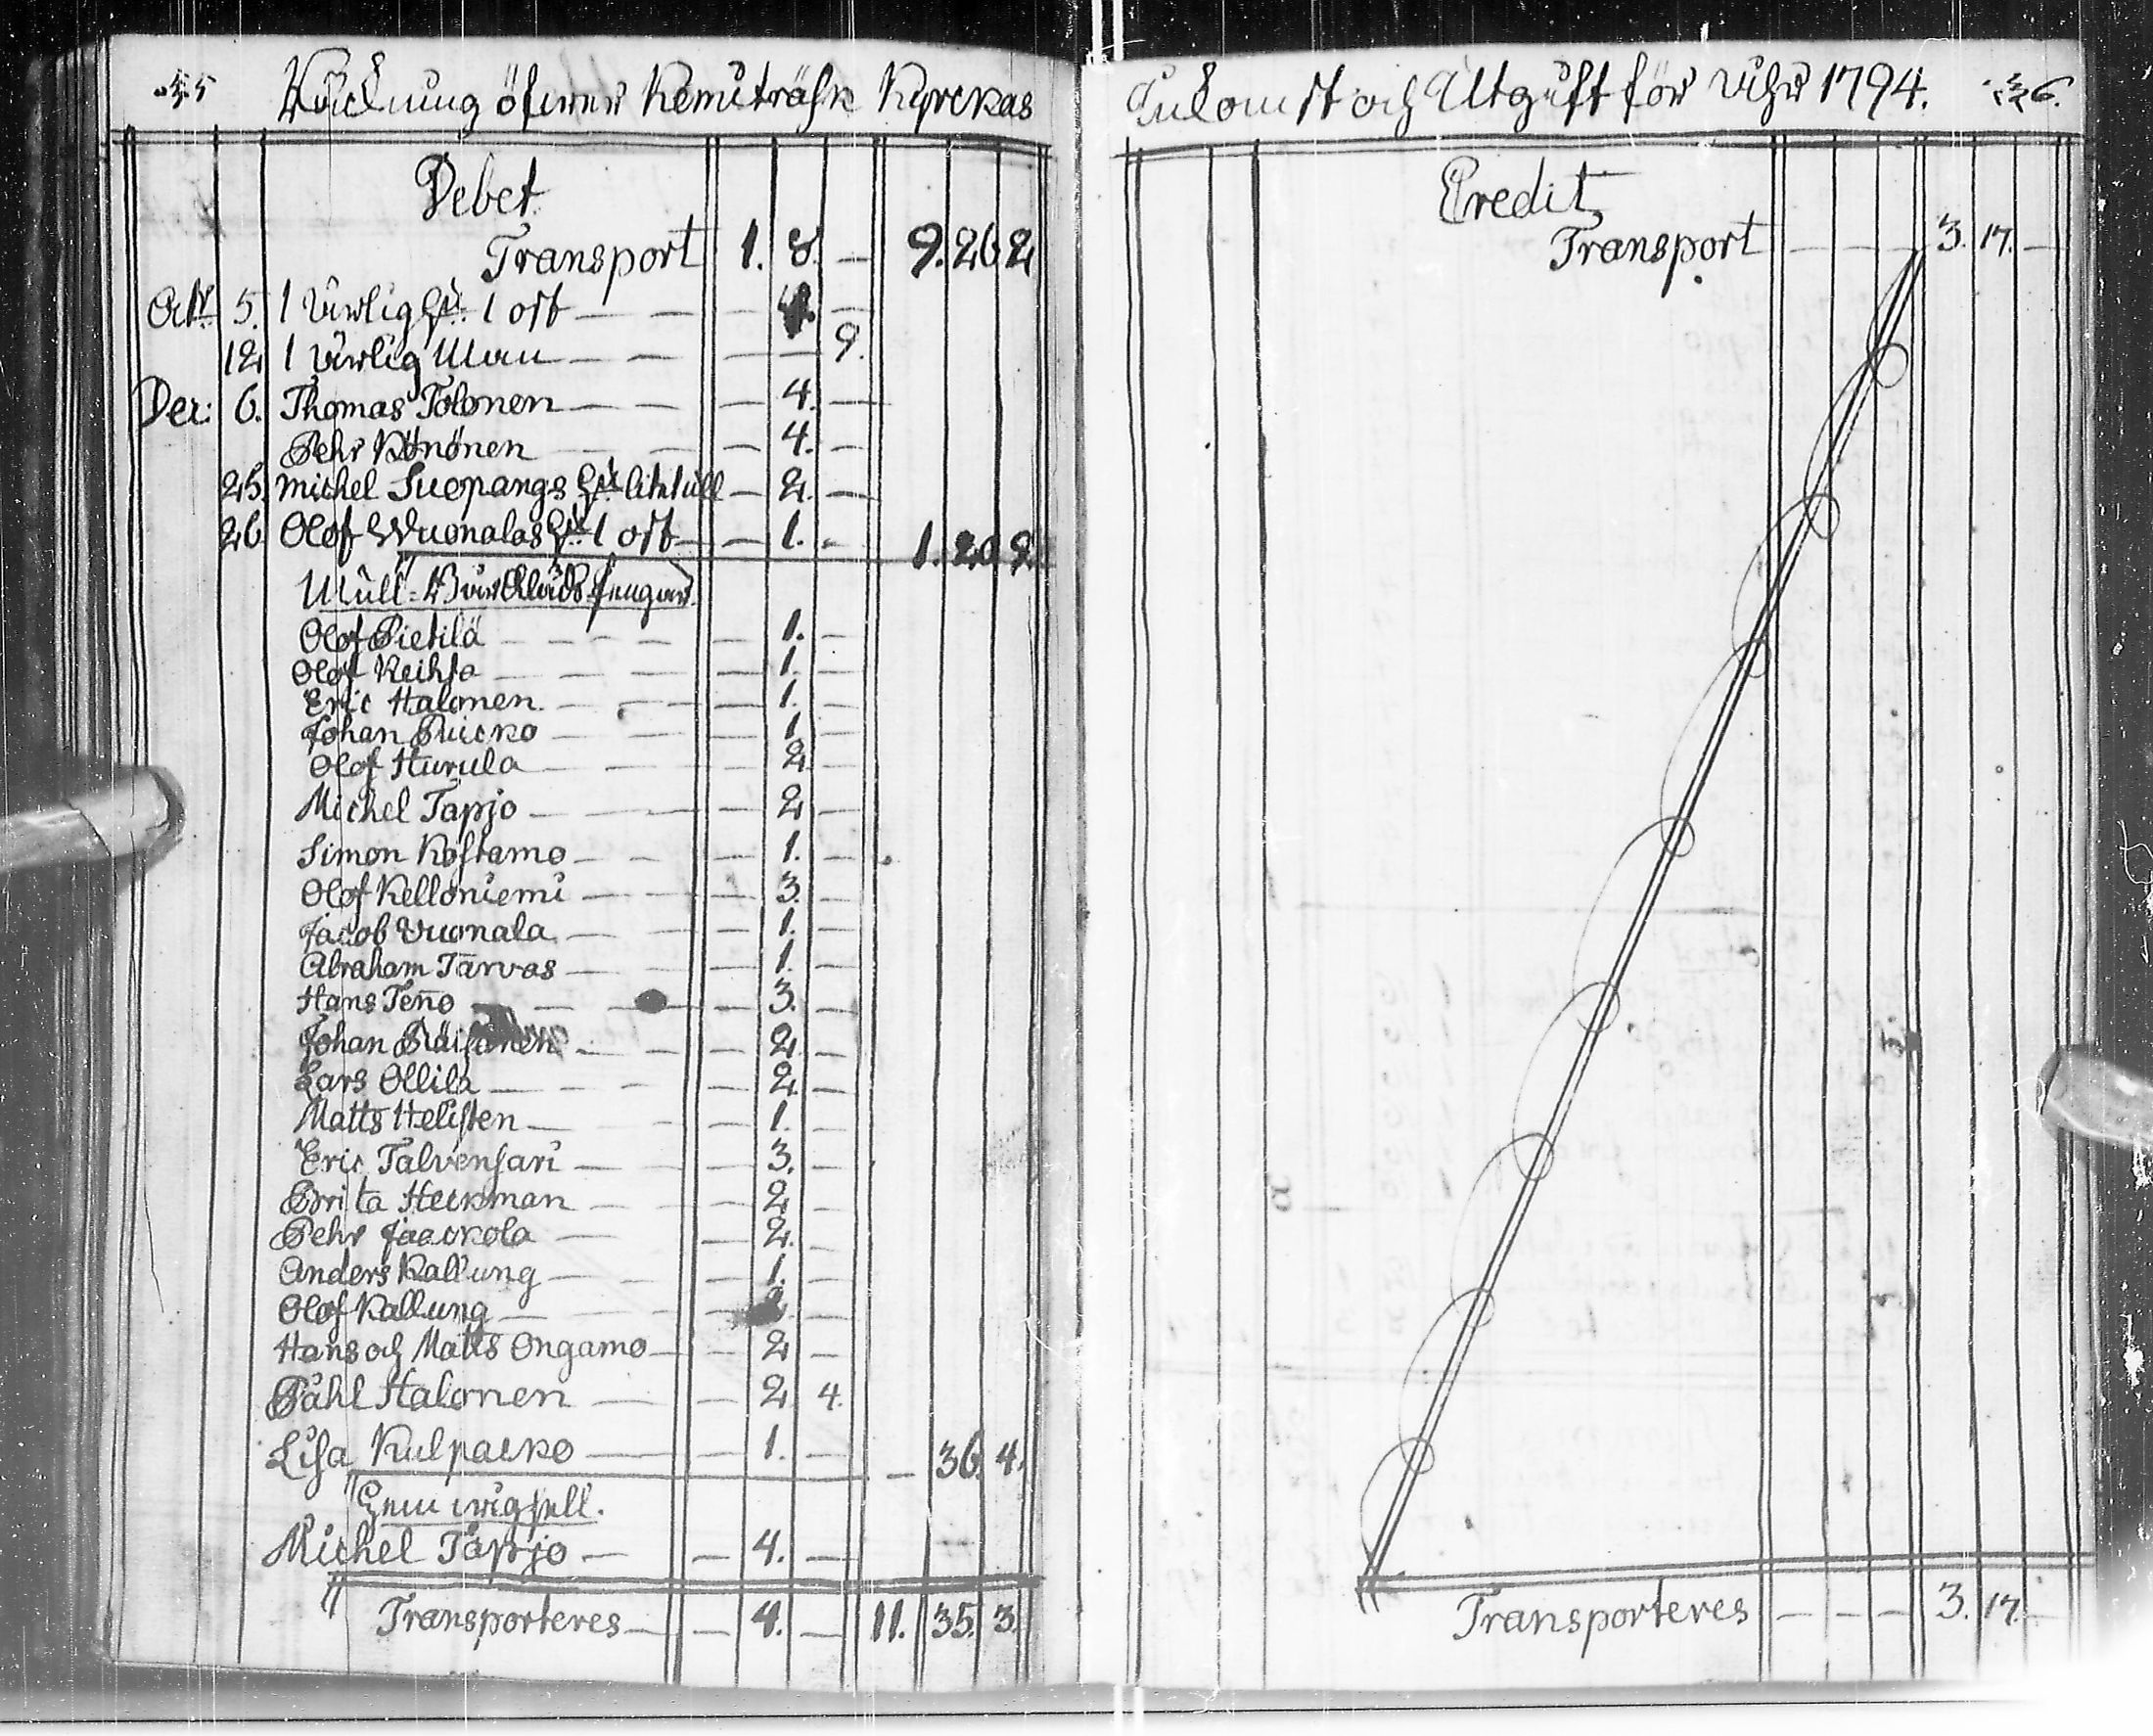 35
Räckning öfwer Kemiträsk Kyrckas
Debet
Transport 1. 8. — 9. 26 2
Oct. 5. 1 lik 1 ort —
12 1 — — — 9.
Dec: 6. Thomas Tolonen — — — 4. —
Pehr Könönen — 4. —
25. Michel Suopangs — 2. —
26 Olof Wuonalas 1 ort — 1. - 1. 20 9.
Olof Pietilä — — — 1. —
Olof Keihta — — — 1. —
Eric Halonen — — — 1. —
Johan Puicko — — — 1 —
Olof Hurula — — — 2 —
Michel Tapjo — — — 2 —
Simon Kostamo — — — 1. —
Olof Kelloniemi — — — 3. —
Jacob Vuonala — — — 1. —
Abraham Tarvas — — — 1. —
Hans Teno — — — 3. —
Johan Räisänen — — — 2 —
Lars Ollila — — — 2. —
Matts Helisten — — — 1. —
Eric Talvensari — — — 3. —
Brita Heckman — — — 2 —
Pehr Jaackola — — — 2. —
Anders Kallung — — — 1. —
Olof Kallung — — —
Hans och Matts Ongamo — — 2 —
Påhl Halonen — — 2 4.
Lisa Kulpacko — — 1. — — 36. 4.
Michel Tapjo — — 4. —
Transporteres — — 4. — 11. 35. 3.
Inkomst och Utgift för åhr 1794. 36.
Credit
Transport — — — 3. 17. —
Transporteres — — — 3. 17. —